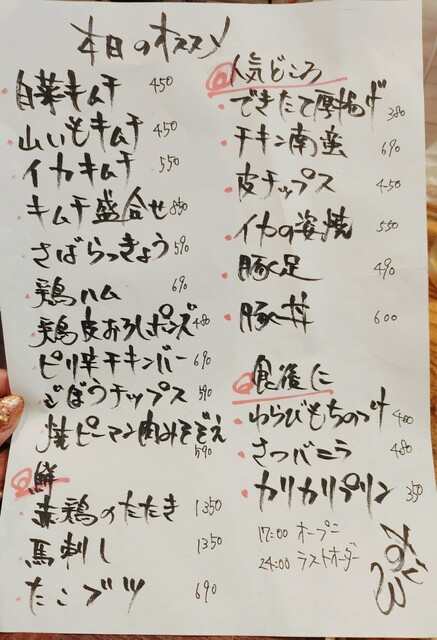 本日のオススメ
自菜キムチ 450
山いもキムチ 450
イカキムチ 550
キムチ盛合せ 850
さばらっきょう 590
鶏ハム 690
鶏皮おろしポンズ 480
ピリ辛チキンバー 690
ごぼうチップス 590
焼ピーマン肉みそぞえ 590
鮮
赤鶏のたたき 1350
馬刺し 1350
たこブツ 690
人気どころ
できたて厚揚げ 380
チキン南蛮 690
皮チップス 450
イカの姿焼 550
豚足 490
豚丼 600
食後に
わらびもち 400
さつバニラ 480
カリカリプリン 350
17:00 オープン
24:00 ラストオーダー